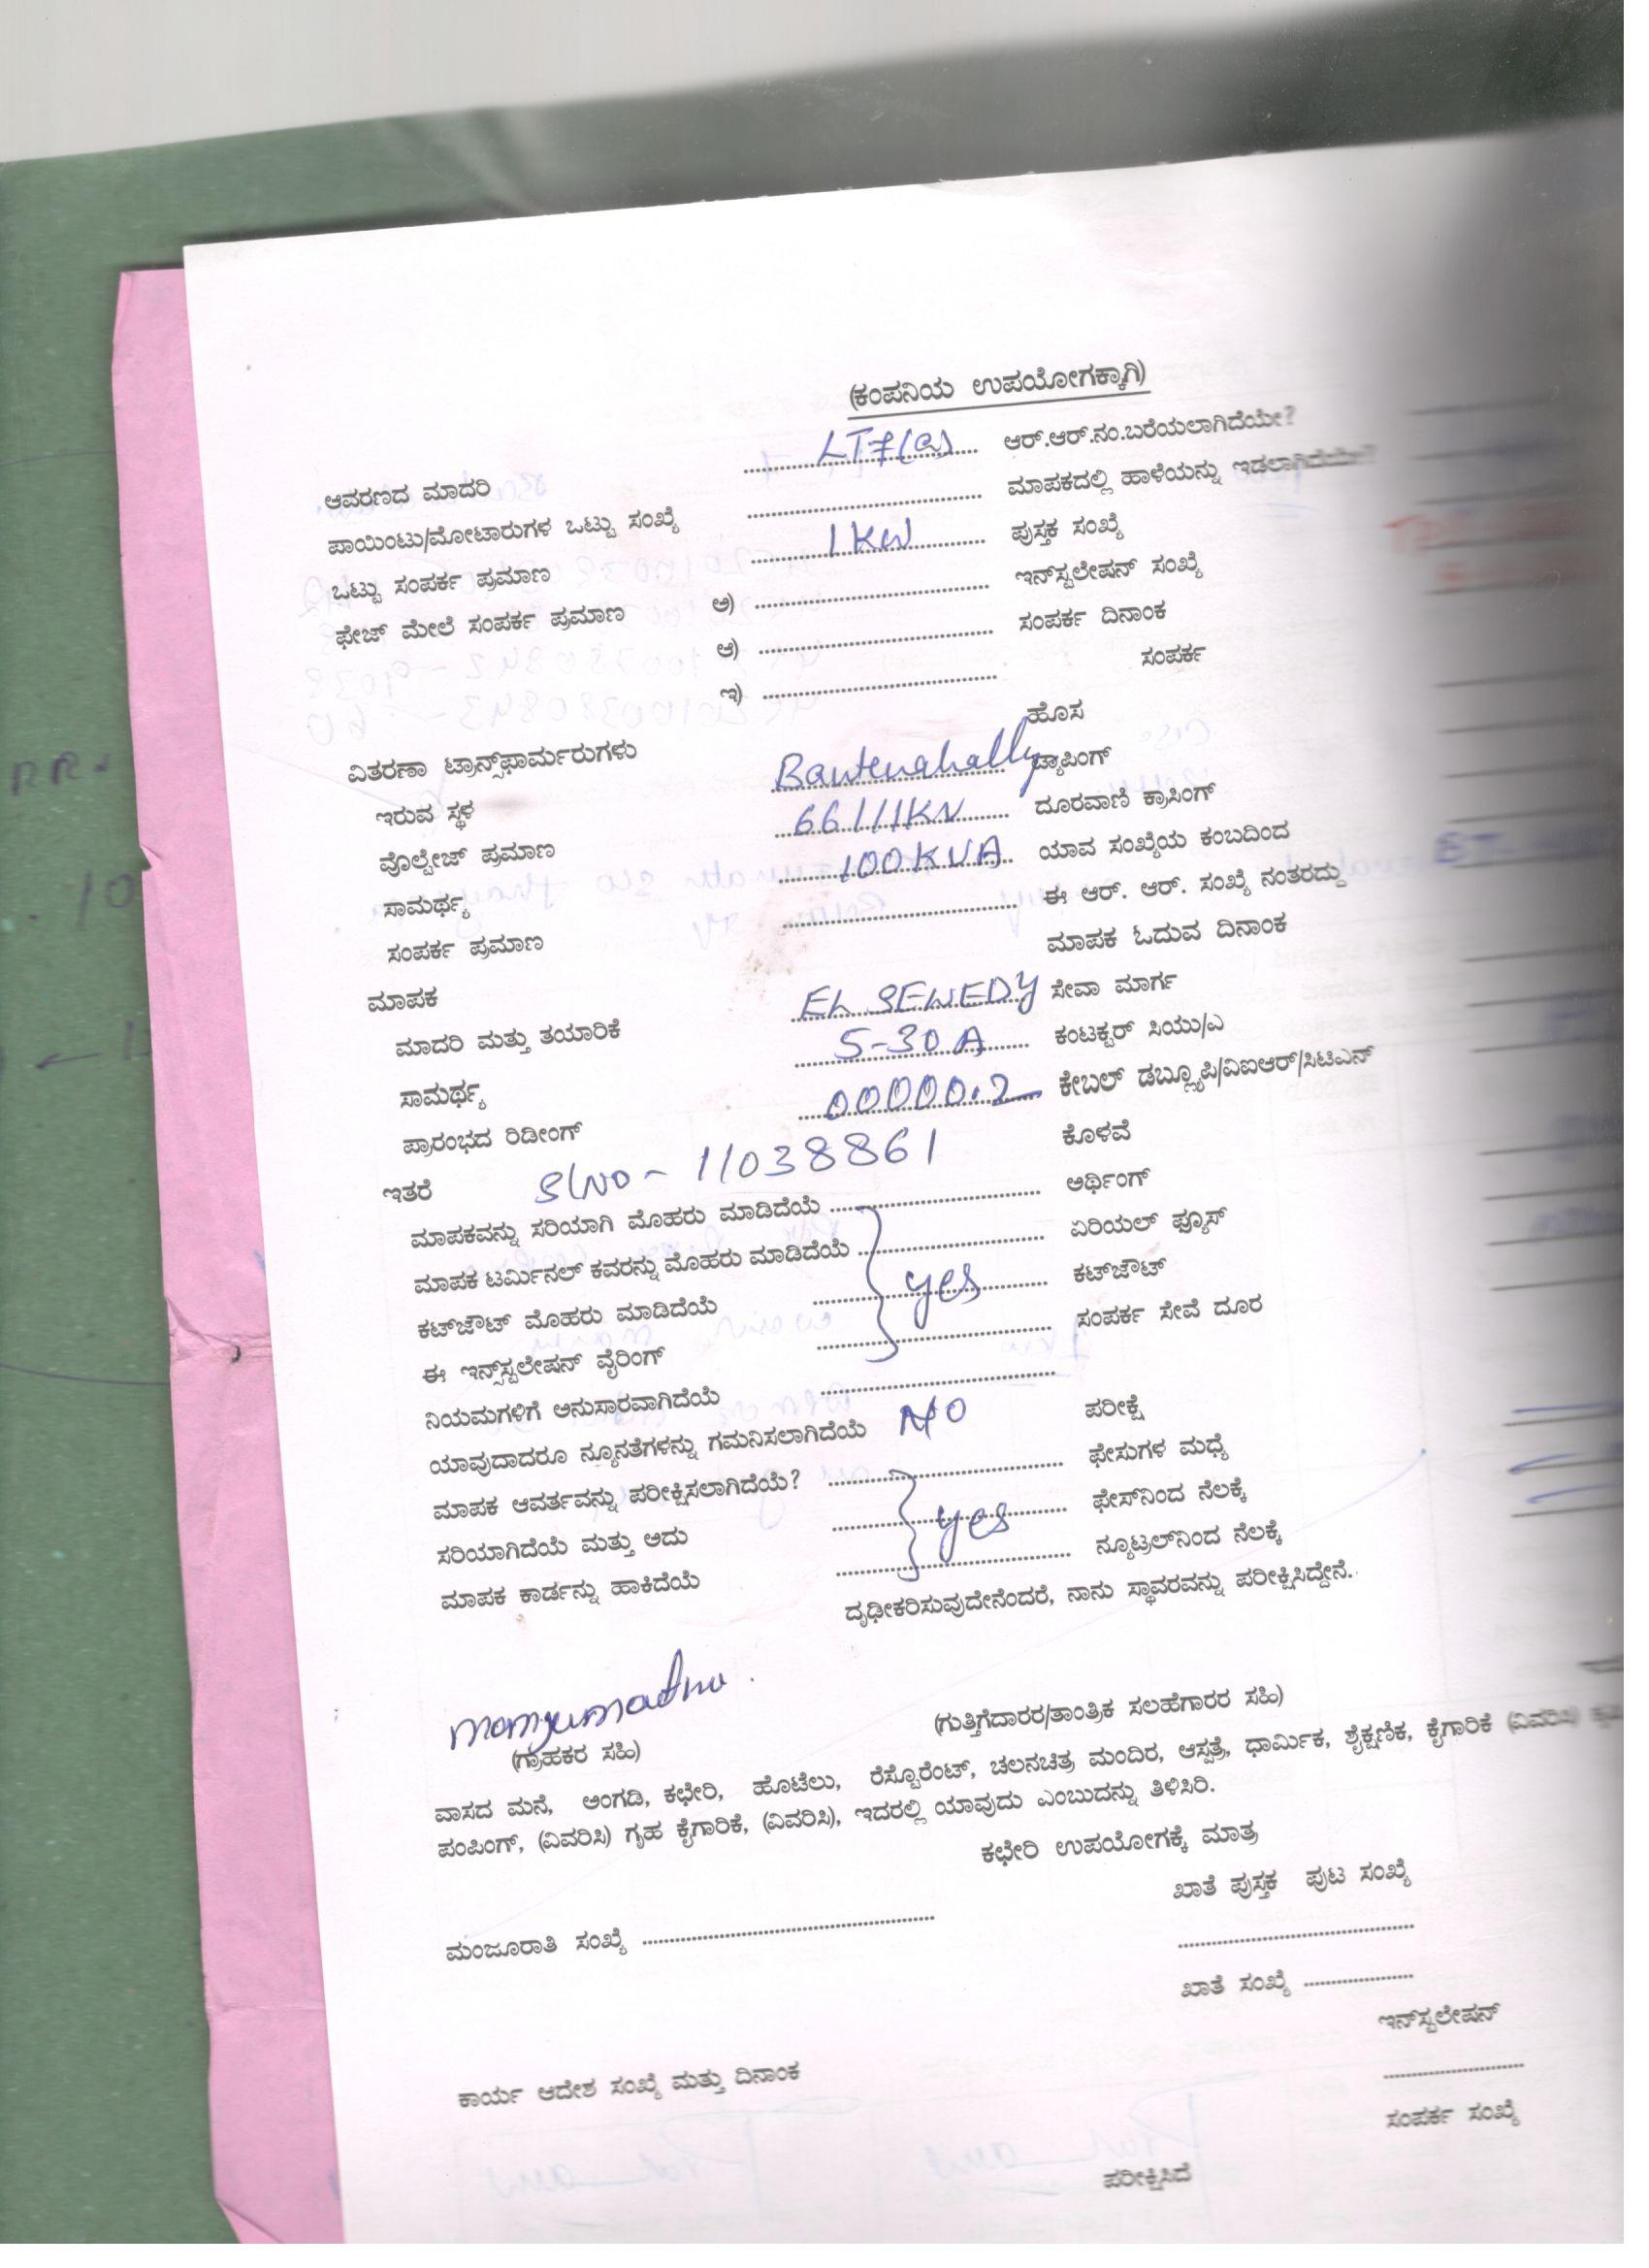 (ಕಂಪನಿಯ ಉಪಯೋಗಕ್ಕಾಗಿ)
ಆವರಣದ ಮಾದರಿ LT7(a) ಆರ್.ಆರ್.ನಂ.ಬರೆಯಲಾಗಿದೆಯೇ?
ಪಾಯಿಂಟು/ಮೋಟಾರುಗಳ ಒಟ್ಟು ಸಂಖ್ಯೆ ಮಾಪಕದಲ್ಲಿ ಹಾಳೆಯನ್ನು ಇಡಲಾಗಿದೆಯೇ?
ಒಟ್ಟು ಸಂಪರ್ಕ ಪ್ರಮಾಣ 1KW ಪುಸ್ತಕ ಸಂಖ್ಯೆ
ಫೇಜ್ ಮೇಲೆ ಸಂಪರ್ಕ ಪ್ರಮಾಣ ಅ) ಇನ್‌ಸ್ಟಲೇಷನ್ ಸಂಖ್ಯೆ
ಆ) ಸಂಪರ್ಕ ದಿನಾಂಕ
ಇ) ಸಂಪರ್ಕ
ಹೊಸ
ವಿತರಣಾ ಟ್ರಾನ್ಸ್‌ಫಾರ್ಮರುಗಳು
ಇರುವ ಸ್ಥಳ Bantenahally ಟ್ಯಾಪಿಂಗ್
ವೊಲ್ಟೇಜ್ ಪ್ರಮಾಣ 66/11KV ದೂರವಾಣಿ ಕ್ರಾಸಿಂಗ್
ಸಾಮರ್ಥ್ಯ 100KVA ಯಾವ ಸಂಖ್ಯೆಯ ಕಂಬದಿಂದ
ಸಂಪರ್ಕ ಪ್ರಮಾಣ ಈ ಆರ್. ಆರ್. ಸಂಖ್ಯೆ ನಂತರದ್ದು
ಮಾಪಕ ಮಾಪಕ ಓದುವ ದಿನಾಂಕ
ಮಾದರಿ ಮತ್ತು ತಯಾರಿಕೆ EL SEWEDY ಸೇವಾ ಮಾರ್ಗ
ಸಾಮರ್ಥ್ಯ 5-30A ಕಂಟಕ್ಟರ್ ಸಿಯು/ಎ
ಪ್ರಾರಂಭದ ರಿಡೀಂಗ್ 00000.2 ಕೇಬಲ್ ಡಬ್ಲ್ಯೂಪಿ/ವಿಐಆರ್/ಸಿಟಿಎನ್
ಇತರೆ Sl No - 11038861 ಕೊಳವೆ
ಮಾಪಕವನ್ನು ಸರಿಯಾಗಿ ಮೊಹರು ಮಾಡಿದೆಯೆ ಅರ್ಥಿಂಗ್
ಮಾಪಕ ಟರ್ಮಿನಲ್ ಕವರನ್ನು ಮೊಹರು ಮಾಡಿದೆಯೆ ಏರಿಯಲ್ ಫ್ಯೂಸ್
ಕಟ್‌ಜೌಟ್ ಮೊಹರು ಮಾಡಿದೆಯೆ yes ಕಟ್‌ಜೌಟ್
ಈ ಇನ್ಸ್‌ಸ್ಟಲೇಷನ್ ವೈರಿಂಗ್ ಸಂಪರ್ಕ ಸೇವೆ ದೂರ
ನಿಯಮಗಳಿಗೆ ಅನುಸಾರವಾಗಿದೆಯೆ
ಯಾವುದಾದರೂ ನ್ಯೂನತೆಗಳನ್ನು ಗಮನಿಸಲಾಗಿದೆಯೆ NO ಪರೀಕ್ಷೆ
ಮಾಪಕ ಆವರ್ತವನ್ನು ಪರೀಕ್ಷಿಸಲಾಗಿದೆಯೆ? ಫೇಸುಗಳ ಮಧ್ಯೆ
ಸರಿಯಾಗಿದೆಯೆ ಮತ್ತು ಅದು yes ಫೇಸ್‌ನಿಂದ ನೆಲಕ್ಕೆ
ಮಾಪಕ ಕಾರ್ಡನ್ನು ಹಾಕಿದೆಯೆ ನ್ಯೂಟ್ರಲ್‌ನಿಂದ ನೆಲಕ್ಕೆ
ದೃಢೀಕರಿಸುವುದೇನೆಂದರೆ, ನಾನು ಸ್ಥಾವರವನ್ನು ಪರೀಕ್ಷಿಸಿದ್ದೇನೆ.
(ಗ್ರಾಹಕರ ಸಹಿ) (ಗುತ್ತಿಗೆದಾರರ/ತಾಂತ್ರಿಕ ಸಲಹೆಗಾರರ ಸಹಿ)
ವಾಸದ ಮನೆ, ಅಂಗಡಿ, ಕಛೇರಿ, ಹೊಟೆಲು, ರೆಸ್ಟೊರೆಂಟ್, ಚಲನಚಿತ್ರ ಮಂದಿರ, ಆಸ್ಪತ್ರೆ, ಧಾರ್ಮಿಕ, ಶೈಕ್ಷಣಿಕ, ಕೈಗಾರಿಕೆ (ವಿವರಿಸಿ)
ಪಂಪಿಂಗ್, (ವಿವರಿಸಿ) ಗೃಹ ಕೈಗಾರಿಕೆ, (ವಿವರಿಸಿ), ಇದರಲ್ಲಿ ಯಾವುದು ಎಂಬುದನ್ನು ತಿಳಿಸಿರಿ.
ಕಛೇರಿ ಉಪಯೋಗಕ್ಕೆ ಮಾತ್ರ
ಖಾತೆ ಪುಸ್ತಕ ಪುಟ ಸಂಖ್ಯೆ
ಮಂಜೂರಾತಿ ಸಂಖ್ಯೆ
ಖಾತೆ ಸಂಖ್ಯೆ
ಇನ್‌ಸ್ಟಲೇಷನ್
ಕಾರ್ಯ ಆದೇಶ ಸಂಖ್ಯೆ ಮತ್ತು ದಿನಾಂಕ
ಸಂಪರ್ಕ ಸಂಖ್ಯೆ
ಪರೀಕ್ಷಿಸಿದೆ